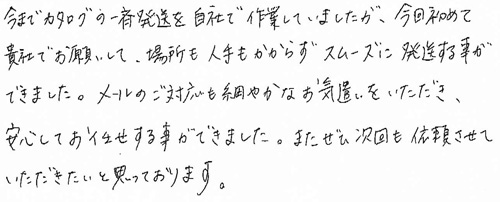 今までカタログの一斉発送を自社で作業していましたが、今回初めて
貴社でお願いして、場所も人手もかからずスムーズに発送する事が
できました。メールのご対応も細やかなお気遣いをいただき、
安心してお任せする事ができました。またぜひ次回も依頼させて
いただきたいと思っております。